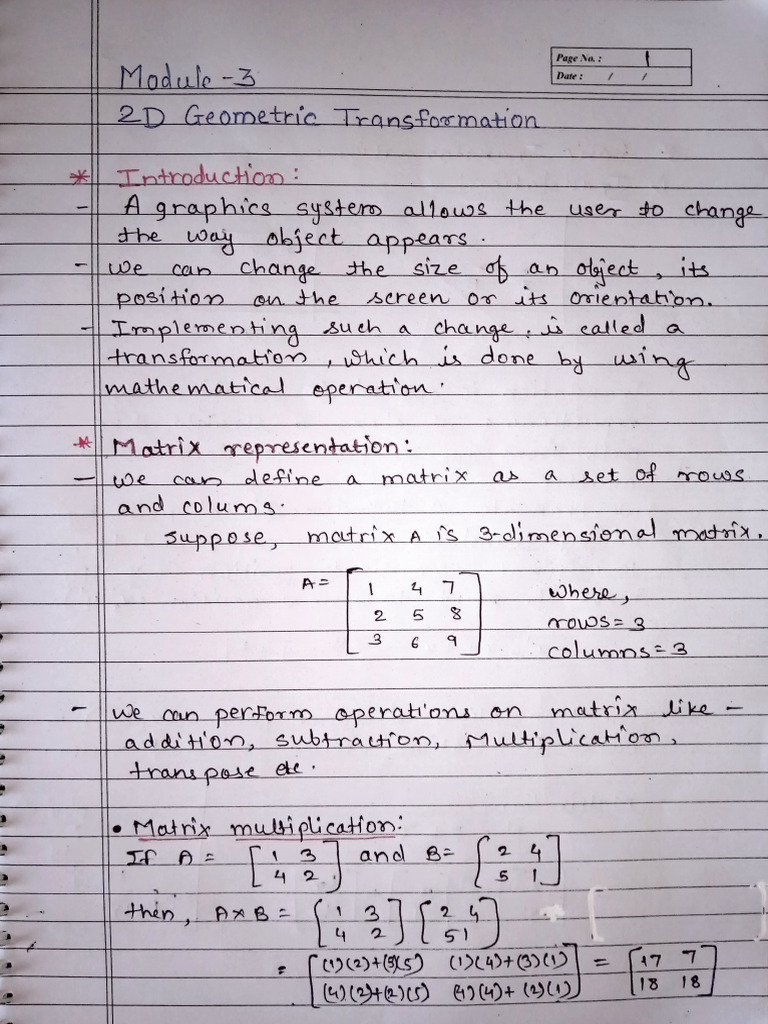 Page No. : 1
Date : / /
Module - 3
2D Geometric Transformation
* Introduction :
- A graphics system allows the user to change
the way object appears .
- we can change the size of an object , its
position on the screen or its orientation.
- Implementing such a change , is called a
transformation , which is done by using
mathematical operation .
* Matrix representation :
- we can define a matrix as a set of rows
and colums .
suppose, matrix A is 3-dimensional matrix .
A = [ 1 4 7 where,
2 5 8 rows = 3
3 6 9 ] columns = 3
- we can perform operations on matrix like -
addition, subtraction, Multiplication ,
transpose etc .
• Matrix multiplication :
If A = [ 1 3 and B = [ 2 4
4 2 ] 5 1 ]
then , A × B = [ 1 3 [ 2 4
4 2 ] 5 1 ]
= [ (1)(2)+(3)(5) (1)(4)+(3)(1) = [ 17 7
(4)(2)+(2)(5) (4)(4)+(2)(1) ] 18 18 ]